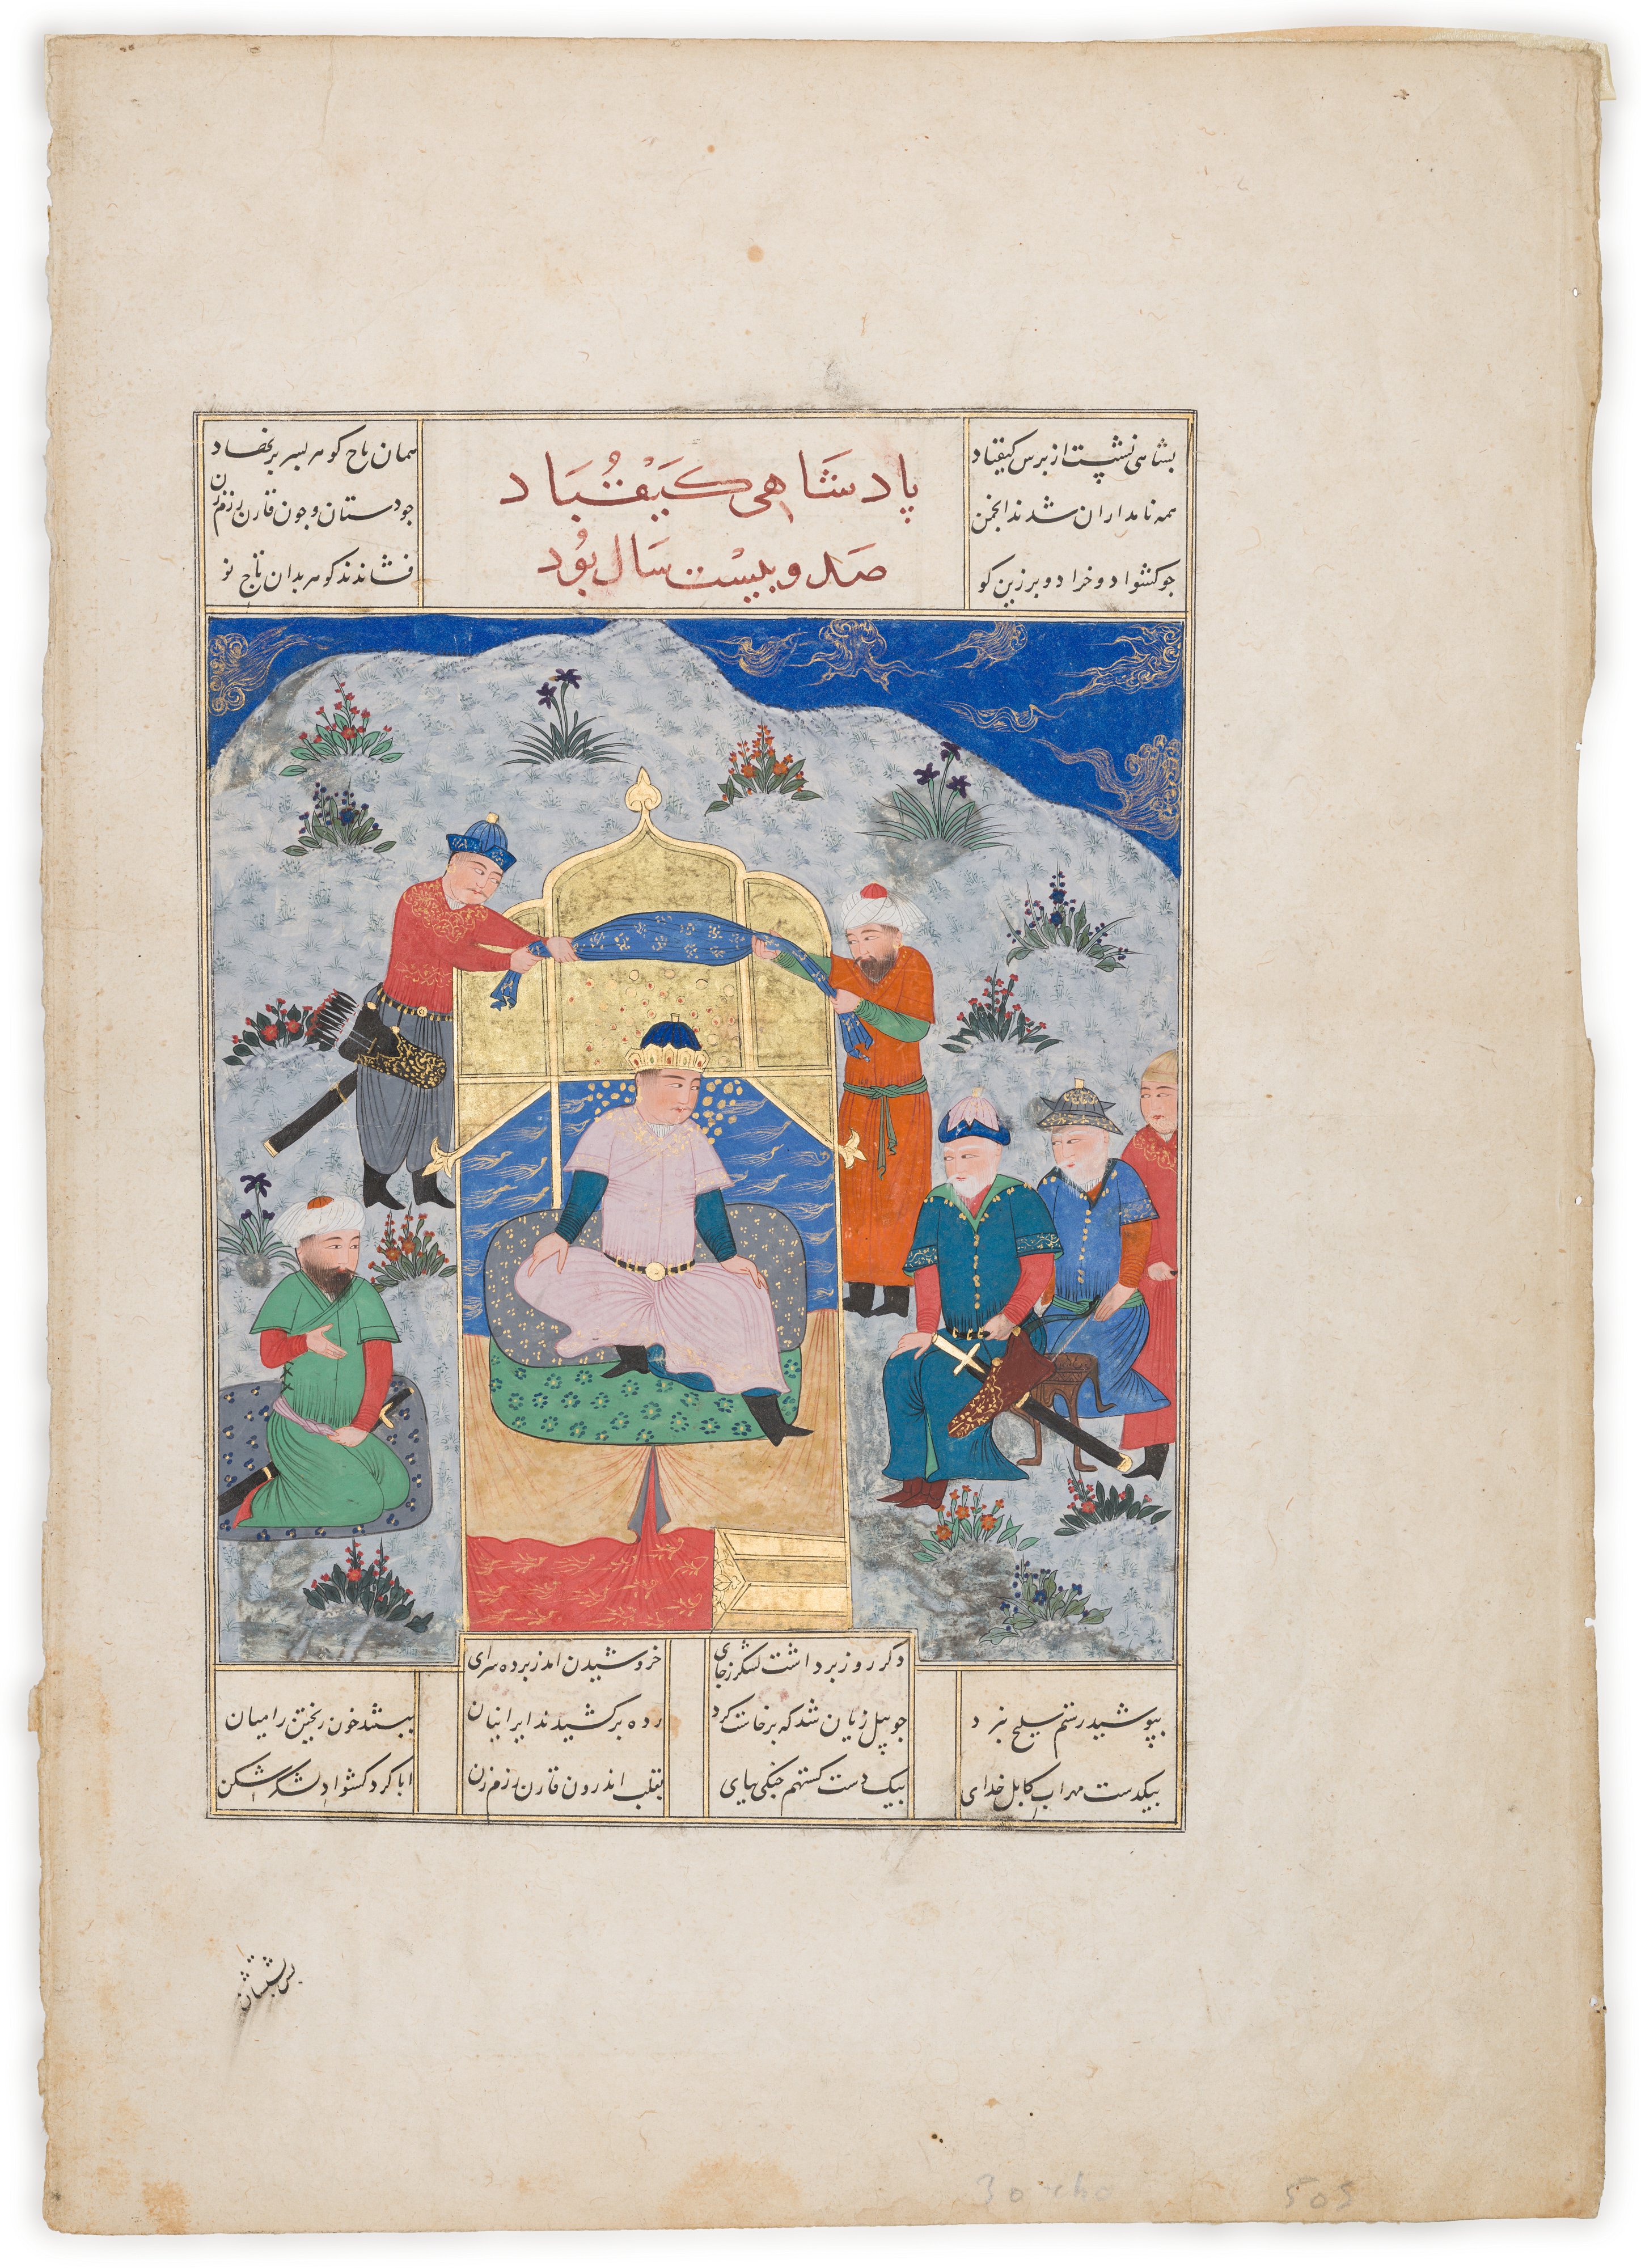 بشاهی نشست از برس کیقباد
همان تاج کوهر بسر بر نهاد
همه نامداران شدند انجمن
جو دستان و جون قارن رزم زن
جو کشواد و خراد و برزین کو
فشاندند کوهر بدان تاج نو
پادشاهی کیقباد
صد و بیست سال بود
دکر روز برداشت لشکر ز جای
خروشیدن امد ز برده سرای
ببوشید رستم سلیح نبرد
جو پیل ژیان شد که برخاست کرد
رده برکشیدند ایرانیان
ببستند خون ریختن را میان
بیکدست مهراب کابل خدای
بیک دست کستهم جنکی بپای
بقلب اندرون قارن رزم زن
ابا کرد کشواد لشکر شکن
505